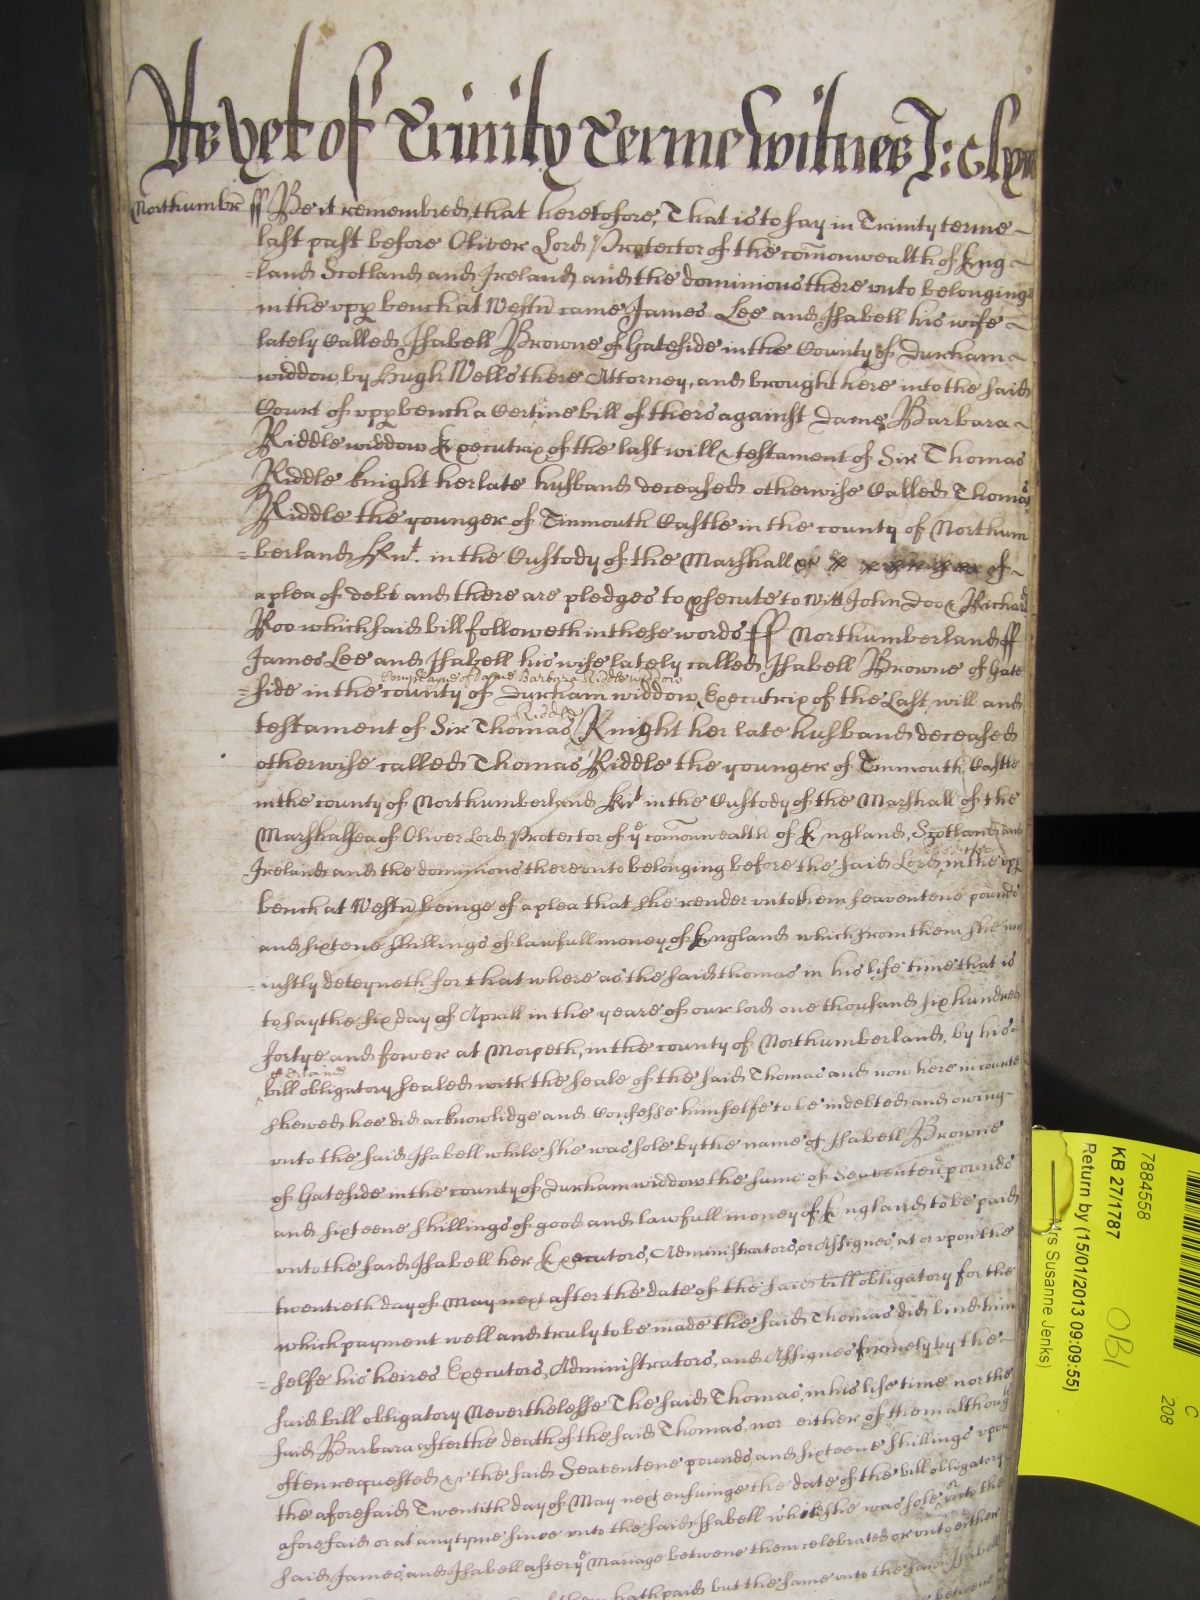 As yet of Trinity Terme Witnes J: Glyn
Northumbr̄ ff Be it remembred, that heretofore, That is to say in Trinity terme
last past before Oliver Lord Protector of the com̄onwealth of Eng
=land Scotland and Ireland and the dominions there unto belonginge
in the upp bench at Westm̄ came James Lee and Isabell his wife
lately Called Isabell Browne of Gateside in the County of Durham
widdow, by Hugh Wells there Attorney, and brought here into the said
Court of upp bench a Certine bill of thers against Dame Barbara
Riddle widdow Executrix of the last will & testament of Sir Thomas
Riddle knight her late husband deceased otherwise Called Thomas
Riddle the younger of Tinmouth Castle in the county of Northum
=berland Knt. in the Custody of the Marshall of
a plea of debt and there are pledges to psecute to witt John Doo & Richard
Roo which said bill followeth in these words ff Northumberland ff
James Lee and Isabell his wife lately called Isabell Browne of Gate
Complayne of Dame Barbara Riddle widdow
=side in the county of Durham widdow Executrix of the Last will and
Riddle
testament of Sir Thomas Knight her late husband deceased
otherwise called Thomas Riddle the younger of Tinmouth Castle
in the county of Northumberland Knt in the Custody of the Marshall of the
Marshalsea of Oliver Lord Protector of ye com̄onwealth of England, Scotland and
Ireland and the dominions thereunto belonging before the said Lord in the upp
bench at Westm̄ beinge of a plea that she render unto them seaventene pounds
and sixtene shillings of lawfull money of England which from them she un
=iustly deteyneth for that where as the said thomas in his life time that is
to say the six day of Aprill in the yeare of our lord one thousand six hundred
fortye and fower at Morpeth, in the county of Northumberland, by his
certaine
bill obligatory sealed with the seale of the said Thomas and now here in courte
shewed hee did acknowlidge and Confesse himselfe to be indebted and owing
unto the said Isabell while she was sole by the name of Isabell Browne
of Gateside in the county of Durham widdow the sume of Seaventene pounds
and sixteene shillings of good and lawfull money of England to be paid
unto the said Isabell her Executors, Administrators, or Assignes, at or upon the
twentieth day of May next after the date of the said bill obligatory for the
which payment well and truly to be made the said Thomas did bind him
=selfe his heires Executors, Administrators, and Assignes firmely by the
said bill obligatory Neverthelesse The said Thomas, in his life time nor the
said Barbara after the death of the said Thomas, nor either of them although
often requested & the said Seaventene pounds and sixteene shillings upon
the aforesaid Twentith day of May next ensuinge the date of the bill obligatory
aforesaid or at any tyme since unto the said Isabell whilst she was sole or unto the
said James, and Isabell after ye Mariage betwene them celebrated or unto either
hath paid but the same unto the said Isabell
betwene
7884558
KB 27/1787
Return by (15/01/2013 09:09:55)
Mrs Susanne Jenks)
OBI
C
208